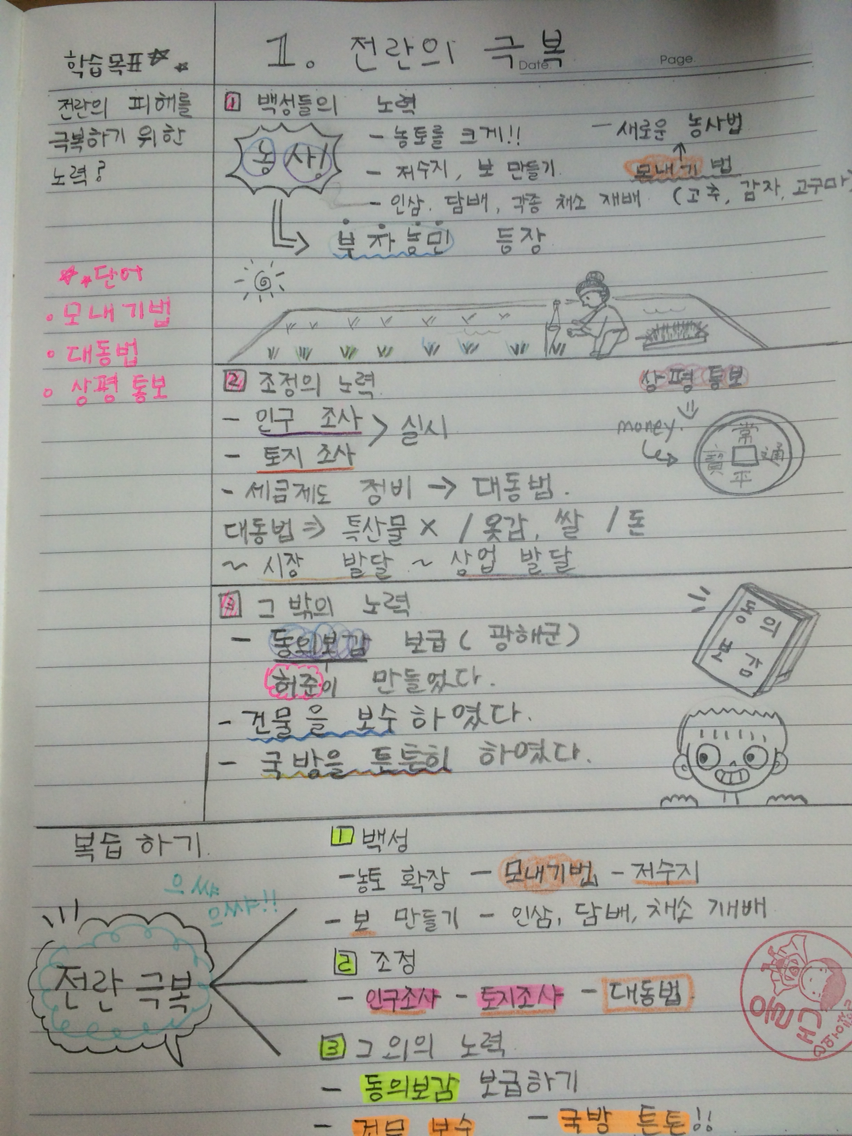 학습목표
1. 전란의 극복
Date
Page
전란의 피해를
극복하기 위한
노력?
단어
모내기법
대동법
상평통보
1 백성들의 노력
농사!
- 농토를 크게!!
- 새로운 농사법
- 저수지, 보 만들기
모내기법
- 인삼, 담배, 각종 채소 재배 (고추, 감자, 고구마)
부자농민 등장
2 조정의 노력
상평통보
- 인구 조사 > 실시
- 토지 조사
money
常 平 通 寶
- 세금제도 정비 → 대동법.
대동법 ⇒ 특산물 × / 옷감, 쌀 / 돈
~ 시장 발달 ~ 상업 발달
3 그 밖의 노력
- 동의보감 보급 (광해군)
허준이 만들었다.
동의
보감
- 건물을 보수하였다.
- 국방을 튼튼히 하였다.
복습하기
으쌰
으쌰!!
전란 극복
1 백성
- 농토 확장 - 모내기법 - 저수지
- 보 만들기 - 인삼, 담배, 채소 재배
2 조정
- 인구조사 - 토지조사 - 대동법
3 그 외의 노력
- 동의보감 보급하기
- 건물 보수 - 국방 튼튼!!